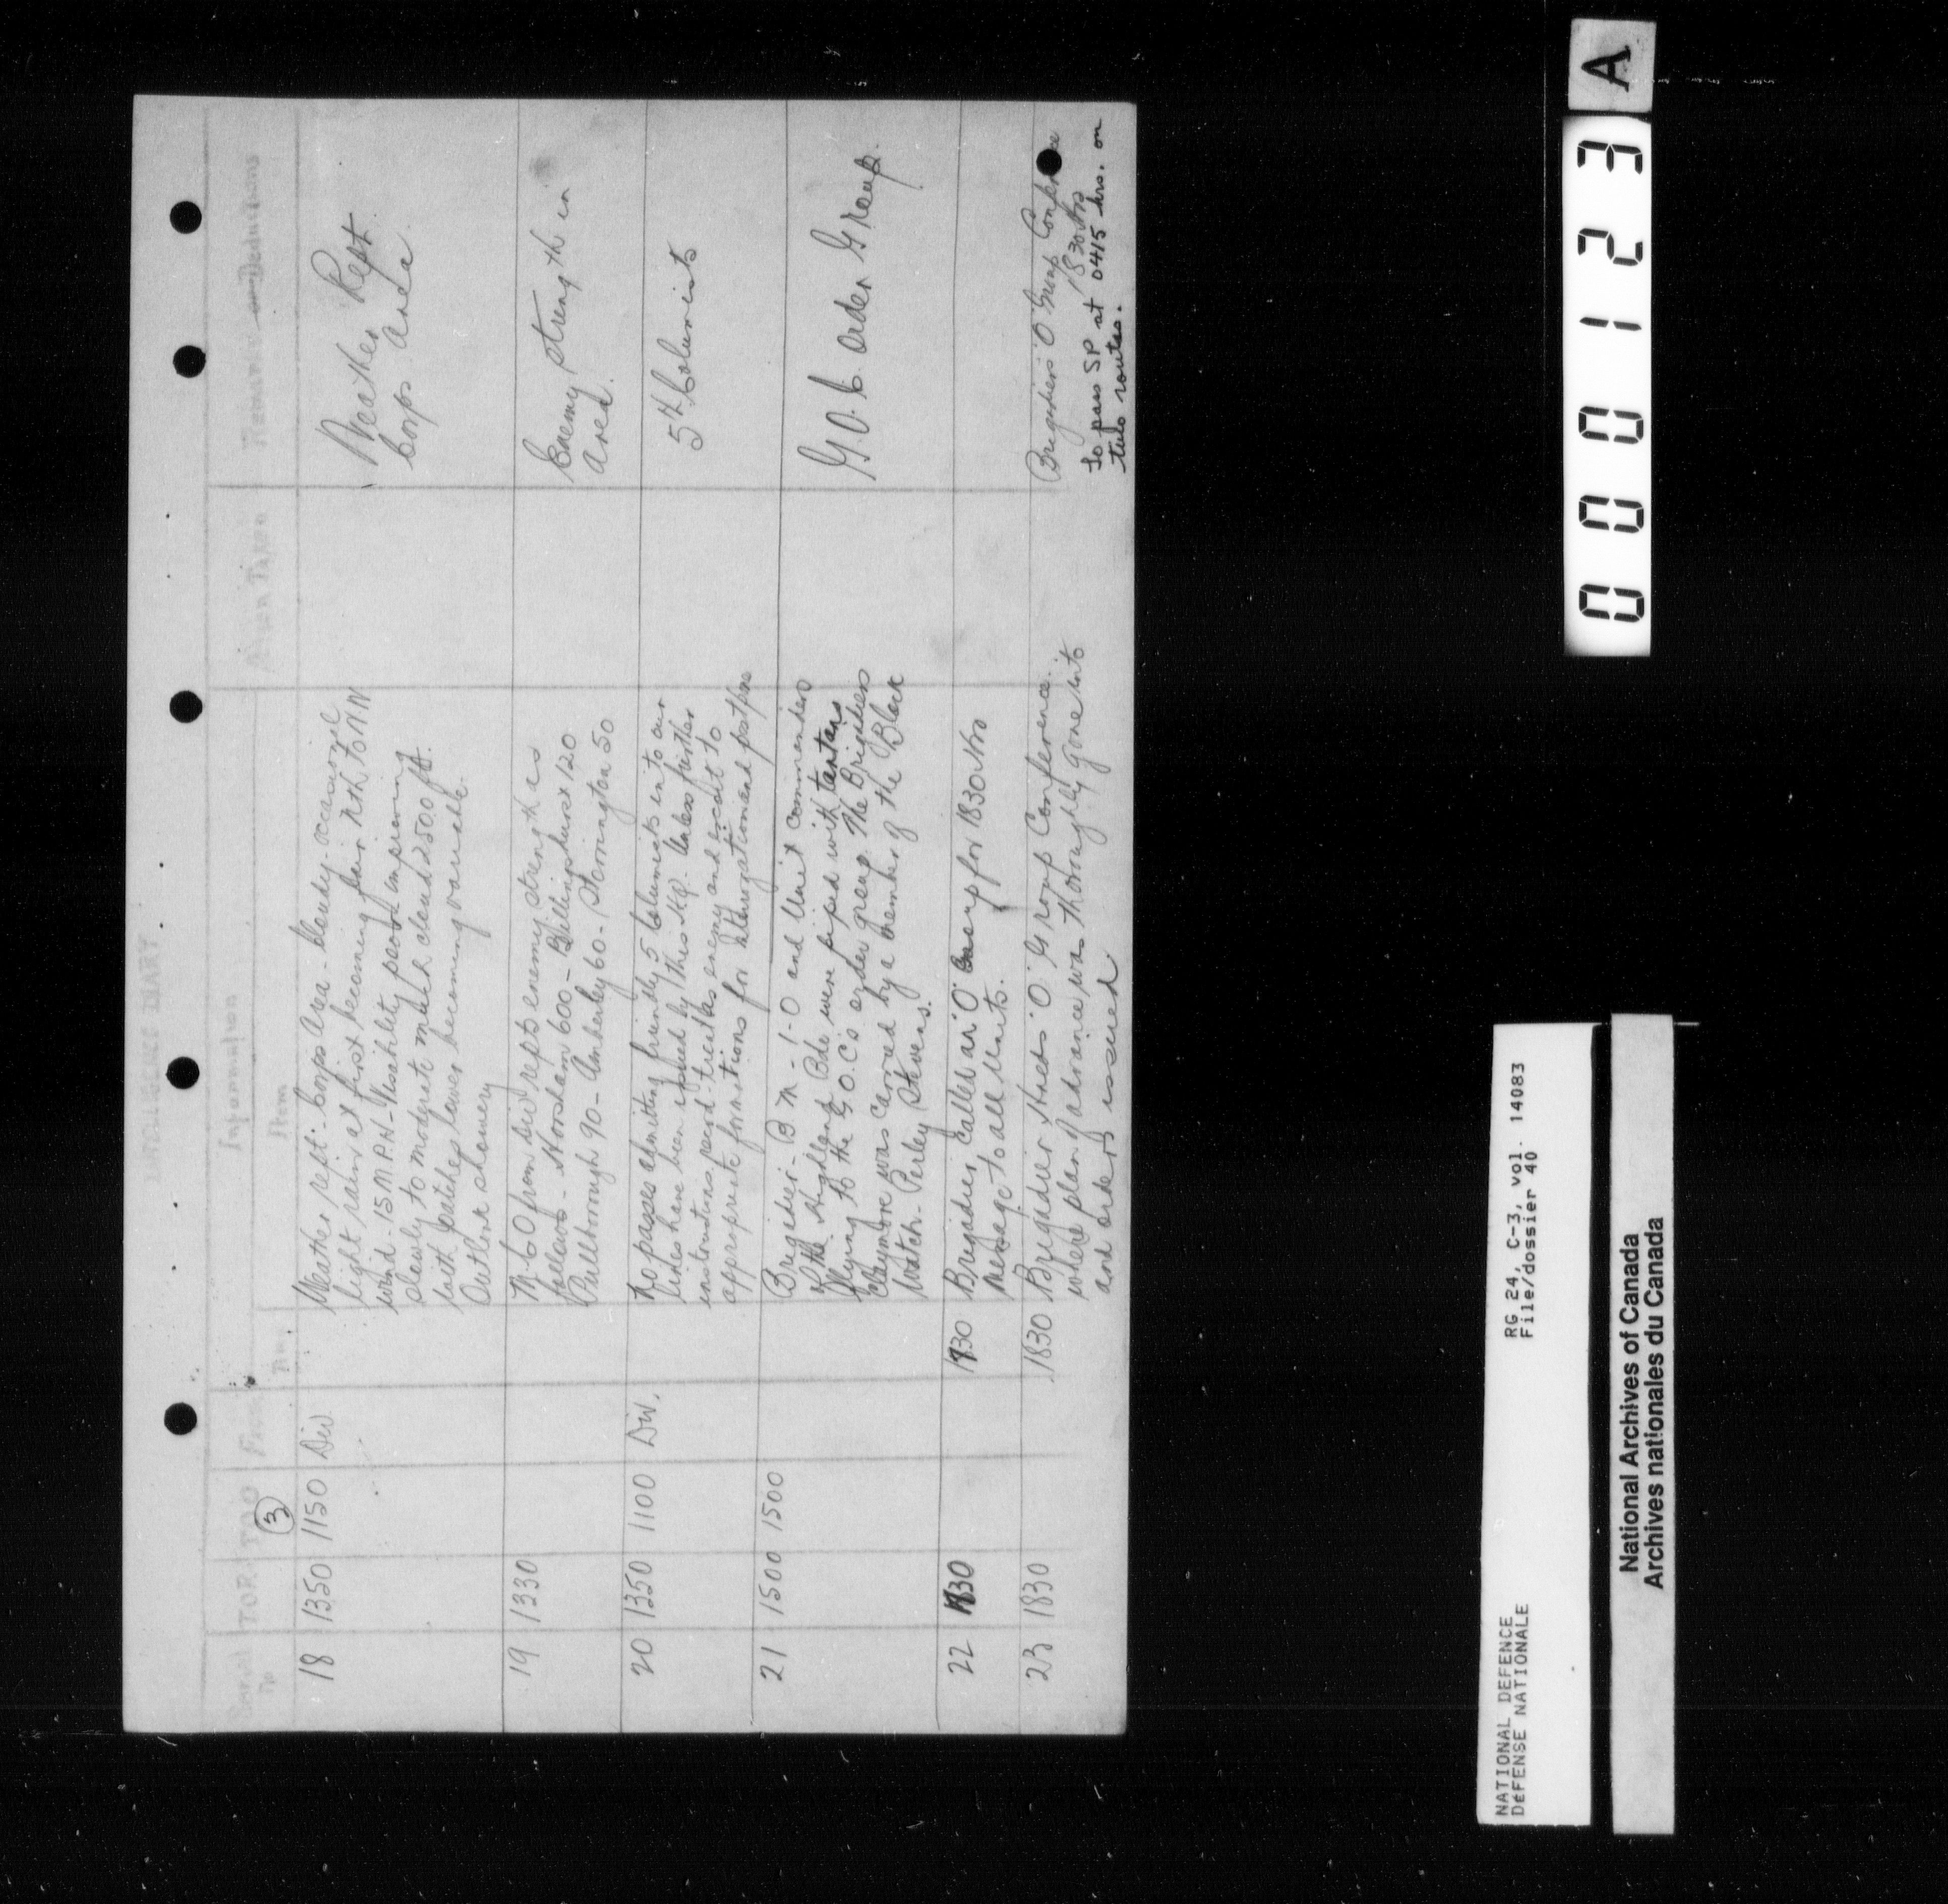 INTELLIGENCE DIARY
Serial No TOR TOO From No. Information Item Action Taken Remarks or Deductions
(3)
18 1350 1150 Div Weather rept - Corps Area - cloudy - occasional
light rain at first becoming fair Nth to NW
wind - 15 M.P.H - Visability poor improving
slowly to moderate much cloud 2500 ft.
with patches lower becoming variable.
Outlook showery
Weather Rept
Corps Area.
19 1330 M-60 from Div repts enemy strength as
follows - Horsham 600 - Billingshurst 120
Pullborough 90 - Amberley 60 - Storrington 50
Enemy strength in
Area.
20 1350 1100 Div. No passes admitting friendly 5 Columists into our
lines have been issued by this HQ. Unless further
instructions recd. treat as enemy and escort to
appropriate formations for interrogation and
5th Columists
21 1500 1500 Brigadier - B M - I-O and Unit Commanders
of the Highland Bde were piped with tartans
flying to the G.O.C's order group. The Brigadiers
Claymore was carried by a member of the Black
Watch - Perley Stevens.
G.O.C. Order Group.
22 1830 1730 Brigadier called an "O" Group for 1830 hrs
Message to all Units.
23 1830 1830 Brigadier Holds "O" Group Conference.
where plan of advance was thoroughly gone into
and orders issued
Brigadiers "O" Group Conference
1830 hrs
To pass SP at 0415 hrs. on
two routes.
000123 A
NATIONAL DEFENCE
DEFENSE NATIONALE
RG 24, C-3, vol. 14083
File/dossier 40
National Archives of Canada
Archives nationales du Canada